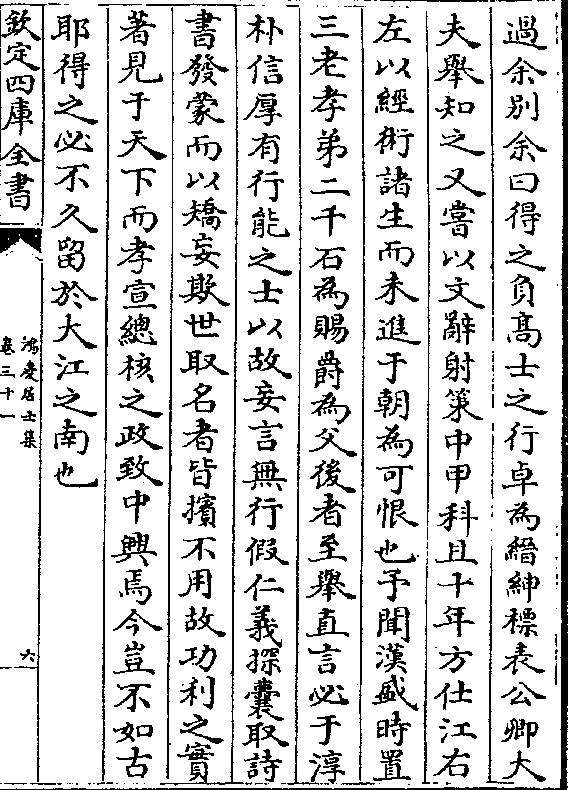 過余别余曰得之負髙士之行卓為縉紳標表公卿大
夫舉知之又嘗以文辭射策中甲科且十年方仕江右
左以經術諸生而未進于朝為可恨也予聞漢盛時置
三老孝弟二千石為賜爵為父後者至舉直言必于淳
朴信厚有行能之士以故妄言無行假仁義探囊取詩
書發蒙而以矯妄欺世取名者皆擯不用故功利之實
著見于天下而孝宣總核之政致中興焉今豈不如古
耶得之必不久留於大江之南也
欽定四庫全書
鴻慶居士集
卷三十一
六